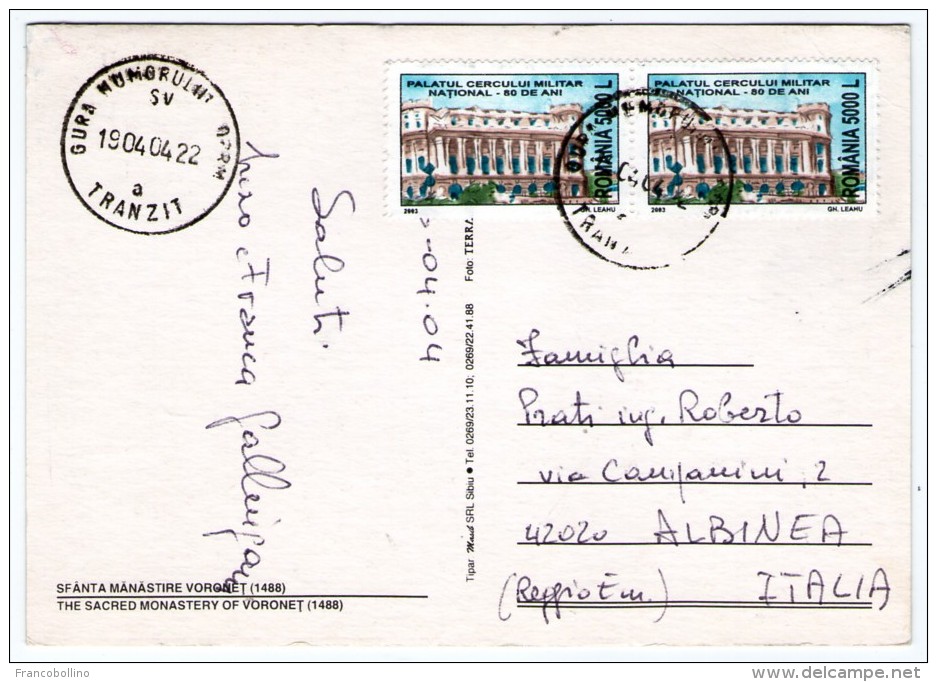 GURA HUMORULUI
SV
19 04 04 22
a
TRANZIT
PALATUL CERCULUI MILITAR
NAȚIONAL - 80 DE ANI
ROMÂNIA 5000 L
2003
GH. LEAHU
PALATUL CERCULUI MILITAR
NAȚIONAL - 80 DE ANI
ROMÂNIA 5000 L
2003
GH. LEAHU
-04.04
Saluti
Franca
Tipar Masib SRL Sibiu ● Tel. 0269/23.11.10; 0269/22.41.88 Foto: TERRA
Famiglia
Prati ing. Roberto
via Campanini, 2
42020 ALBINEA
(Reggio Em.) ITALIA
SFÂNTA MĂNĂSTIRE VORONEȚ (1488)
THE SACRED MONASTERY OF VORONEȚ (1488)
Francobollino
delcampe.net